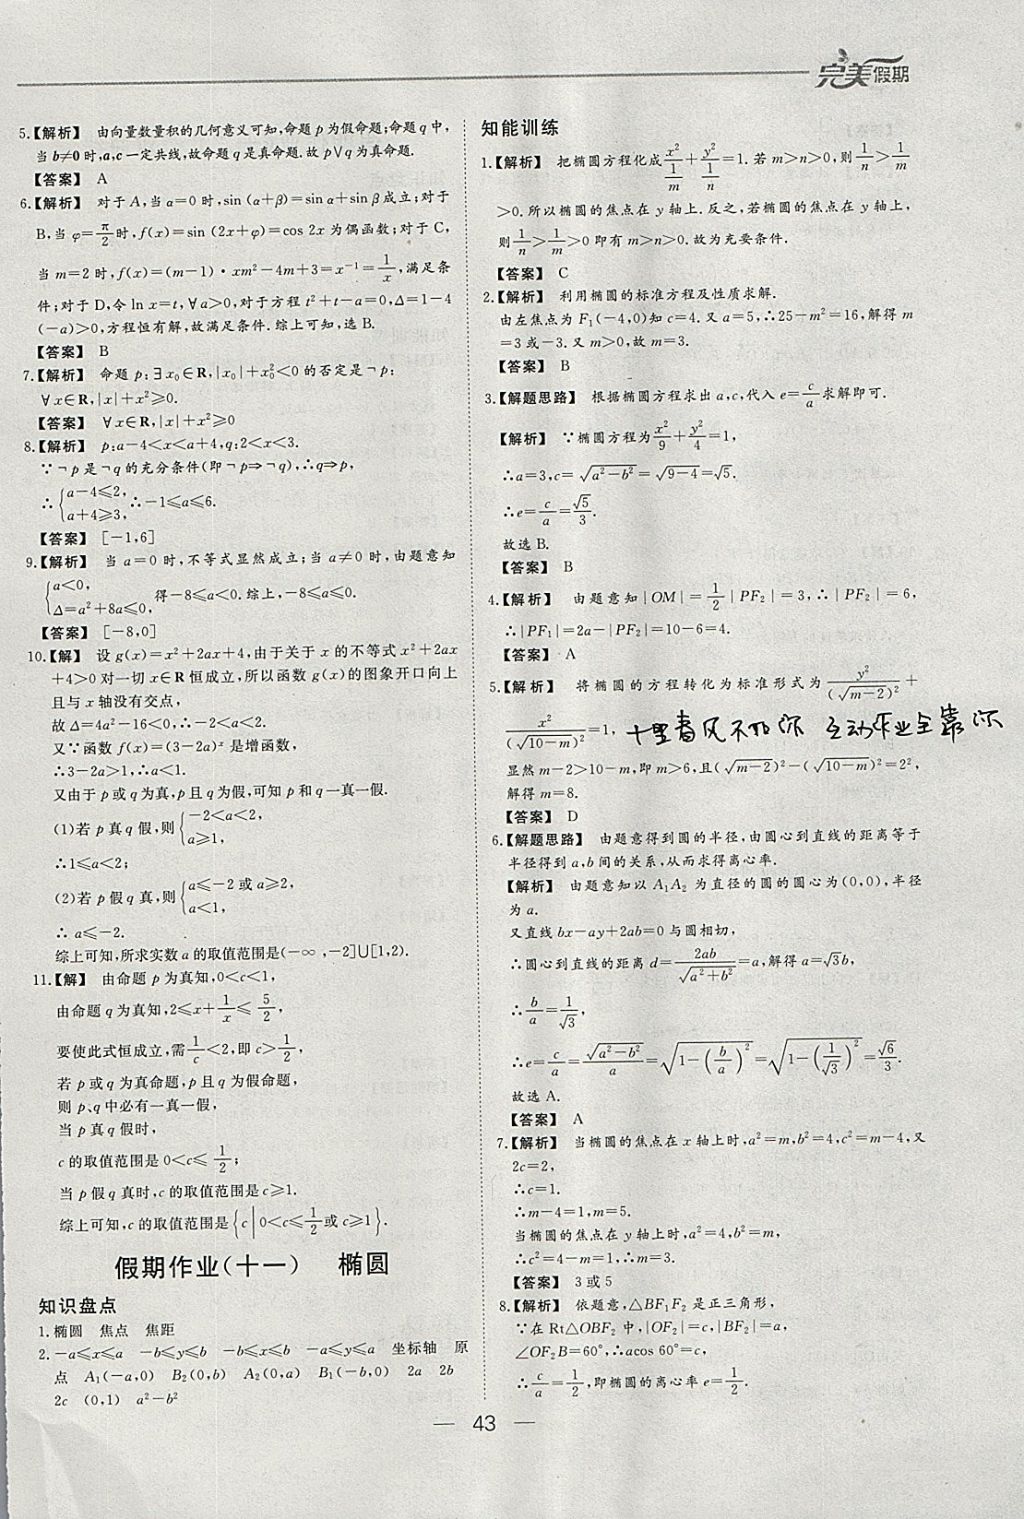 完美假期
5.【解析】 由向量数量积的几何意义可知,命题p为假命题;命题q中,
当b≠0时,a,c一定共线,故命题q是真命题.故p∨q为真命题.
【答案】 A
6.【解析】 对于A,当α=0时,sin (α+β)=sin α+sin β成立;对于
B,当φ=π/2时,f(x)=sin (2x+φ)=cos 2x为偶函数;对于C,
当m=2时,f(x)=(m-1)·xm²-4m+3=x⁻¹=1/x,满足条
件;对于D,令ln x=t,∀a>0,对于方程t²+t-a=0,Δ=1-4
(-a)>0,方程恒有解,故满足条件.综上可知,选B.
【答案】 B
7.【解析】 命题p:∃x₀∈R,|x₀|+x₀²<0的否定是¬p:
∀x∈R,|x|+x²≥0.
【答案】 ∀x∈R,|x|+x²≥0
8.【解析】 p:a-4<x<a+4,q:2<x<3.
∵¬p是¬q的充分条件(即¬p⇒¬q),∴q⇒p,
∴{a-4≤2, a+4≥3, ∴-1≤a≤6.
【答案】 [-1,6]
9.【解析】 当a=0时,不等式显然成立;当a≠0时,由题意知
{a<0, Δ=a²+8a≤0, 得-8≤a<0.综上,-8≤a≤0.
【答案】 [-8,0]
10.【解】 设g(x)=x²+2ax+4,由于关于x的不等式x²+2ax
+4>0对一切x∈R恒成立,所以函数g(x)的图象开口向上
且与x轴没有交点,
故Δ=4a²-16<0,∴-2<a<2.
又∵函数f(x)=(3-2a)ˣ是增函数,
∴3-2a>1,∴a<1.
又由于p或q为真,p且q为假,可知p和q一真一假.
(1)若p真q假,则{-2<a<2, a≥1,
∴1≤a<2;
(2)若p假q真,则{a≤-2或a≥2, a<1,
∴a≤-2.
综上可知,所求实数a的取值范围是(-∞,-2]∪[1,2).
11.【解】 由命题p为真知,0<c<1,
由命题q为真知,2≤x+1/x≤5/2,
要使此式恒成立,需1/c<2,即c>1/2,
若p或q为真命题,p且q为假命题,
则p、q中必有一真一假,
当p真q假时,
c的取值范围是0<c≤1/2;
当p假q真时,c的取值范围是c≥1.
综上可知,c的取值范围是{c|0<c≤1/2或c≥1}.
假期作业(十一) 椭圆
知识盘点
1.椭圆 焦点 焦距
2.-a≤x≤a -b≤y≤b -b≤x≤b -a≤y≤a 坐标轴 原
点 A₁(-a,0) B₂(0,b) A₂(0,a) B₁(-b,0) 2a 2b
2c (0,1) a²-b²
知能训练
1.【解析】 把椭圆方程化成x²/(1/m)+y²/(1/n)=1.若m>n>0,则1/n>1/m
>0.所以椭圆的焦点在y轴上.反之,若椭圆的焦点在y轴上,
则1/n>1/m>0即有m>n>0.故为充要条件.
【答案】 C
2.【解析】 利用椭圆的标准方程及性质求解.
由左焦点为F₁(-4,0)知c=4.又a=5,∴25-m²=16,解得m
=3或-3.又m>0,故m=3.
【答案】 B
3.【解题思路】 根据椭圆方程求出a,c,代入e=c/a求解即可.
【解析】 ∵椭圆方程为x²/9+y²/4=1,
∴a=3,c=√(a²-b²)=√(9-4)=√5.
∴e=c/a=√5/3.
故选B.
【答案】 B
4.【解析】 由题意知|OM|=1/2|PF₂|=3,∴|PF₂|=6,
∴|PF₁|=2a-|PF₂|=10-6=4.
【答案】 A
5.【解析】 将椭圆的方程转化为标准形式为y²/(√(m-2))²+
x²/(√(10-m))²=1,
十里春风不如你 互动作业全靠你
显然m-2>10-m,即m>6,且(√(m-2))²-(√(10-m))²=2²,
解得m=8.
【答案】 D
6.【解题思路】 由题意得到圆的半径,由圆心到直线的距离等于
半径得到a,b间的关系,从而求得离心率.
【解析】 由题意知以A₁A₂为直径的圆的圆心为(0,0),半径
为a.
又直线bx-ay+2ab=0与圆相切,
∴圆心到直线的距离d=2ab/√(a²+b²)=a,解得a=√3b,
∴b/a=1/√3,
∴e=c/a=√(a²-b²)/a=√(1-(b/a)²)=√(1-(1/√3)²)=√6/3.
故选A.
【答案】 A
7.【解析】 当椭圆的焦点在x轴上时,a²=m,b²=4,c²=m-4,又
2c=2,
∴c=1.
∴m-4=1,m=5.
当椭圆的焦点在y轴上时,a²=4,b²=m,
∴c²=4-m=1,∴m=3.
【答案】 3或5
8.【解析】 依题意,△BF₁F₂是正三角形,
∵在Rt△OBF₂中,|OF₂|=c,|BF₂|=a,
∠OF₂B=60°,∴acos 60°=c,
∴c/a=1/2,即椭圆的离心率e=1/2.
— 43 —